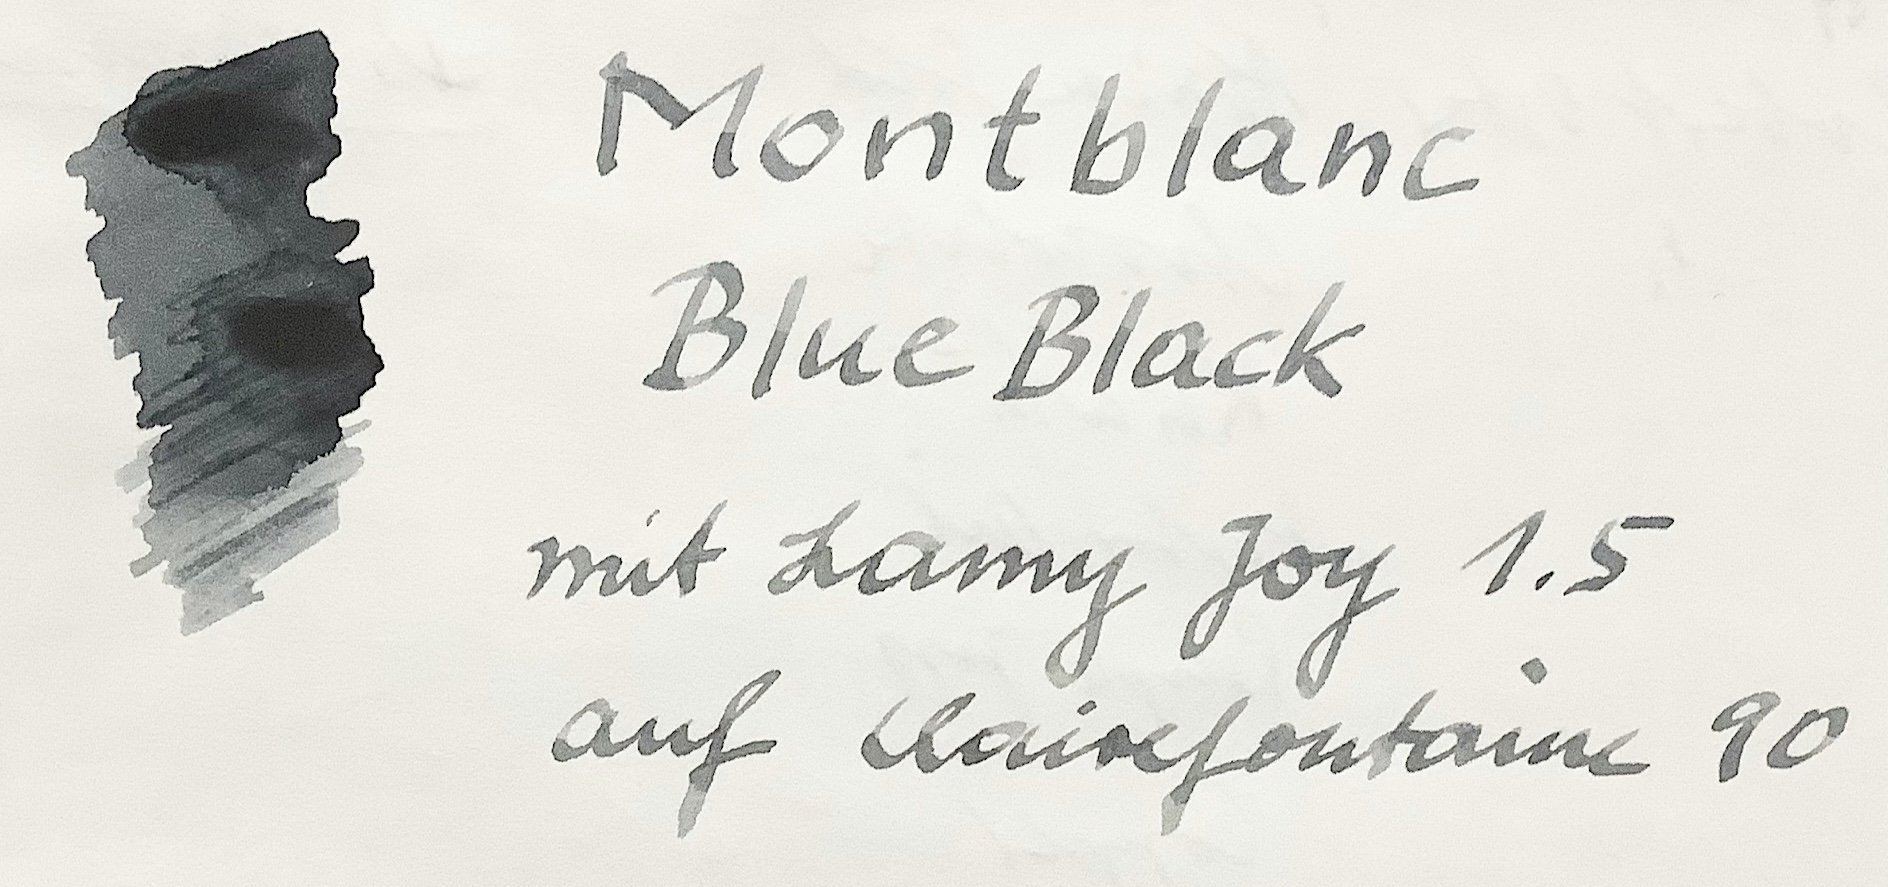 Montblanc
Blue Black
mit Lamy Joy 1.5
auf Clairefontaine 90